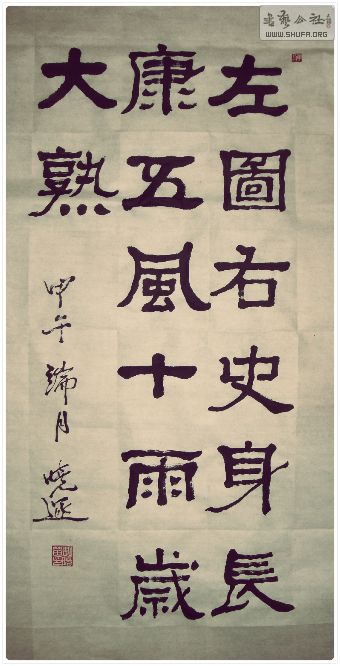 左圖右史身長
康五風十雨歲
大熟
甲午端月曉
書藝公社
WWW.SHUFA.ORG